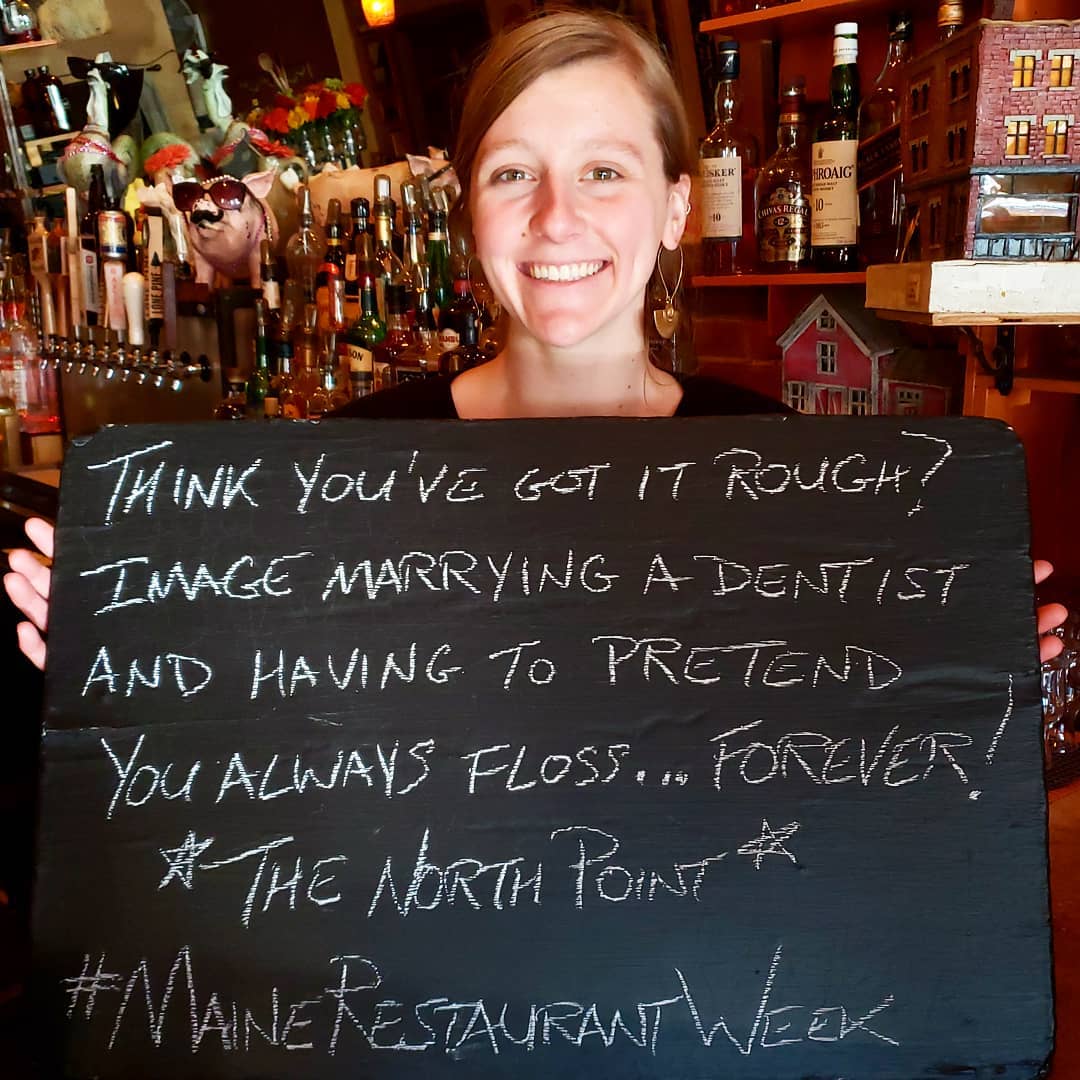 THINK YOU'VE GOT IT ROUGH?
IMAGE MARRYING A DENTIST
AND HAVING TO PRETEND
YOU ALWAYS FLOSS... FOREVER!
*THE NORTH POINT*
#MAINERESTAURANTWEEK
CHIVAS REGAL
12
10
LONE PINE